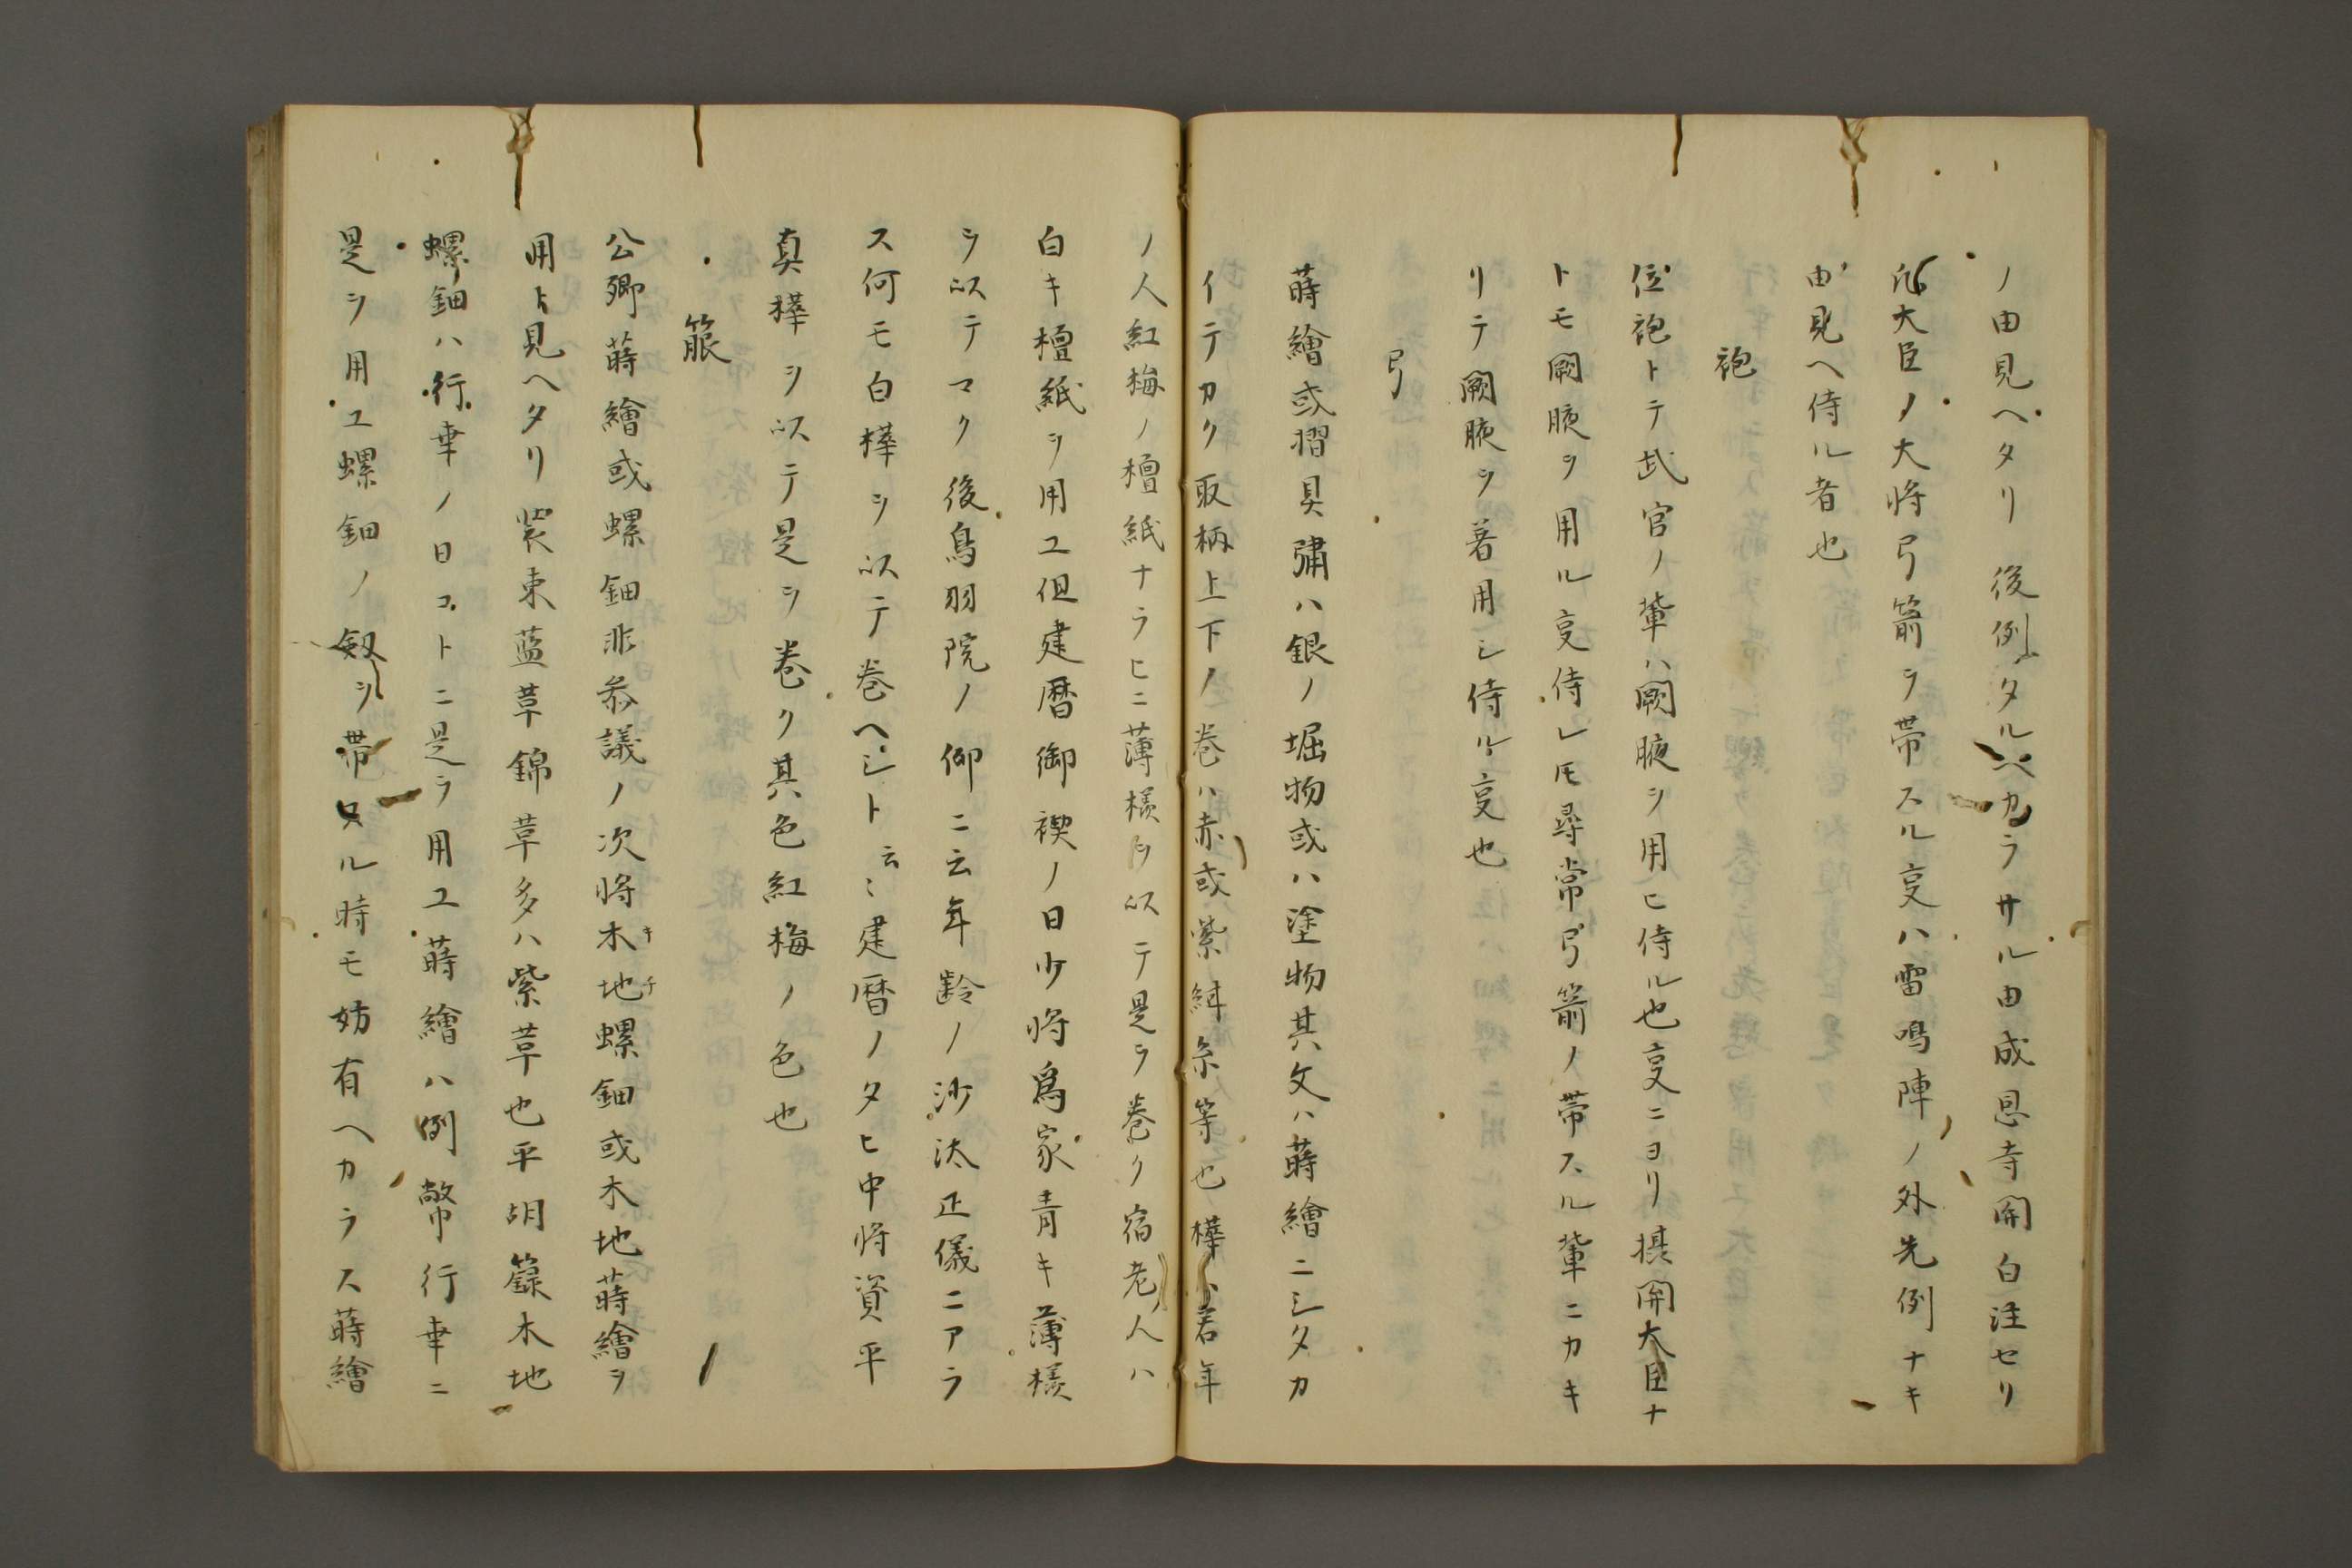 ノ由見ヘタリ後例タルヘカラサル由成恩寺関白注セリ
凡大臣ノ大将弓箭ヲ帯スル叓ハ雷鳴陣ノ外先例ナキ
由見ヘ侍ル者也
袍
位袍トテ武官ノ輩ハ闕腋ヲ用ヒ侍ル也叓ニヨリ摂関大臣ナ
トモ闕腋ヲ用ル叓侍レ𪜈尋常弓箭ノ帯スル輩ニカキ
リテ闕腋ヲ著用シ侍ル叓也
弓
蒔繪或摺貝彇ハ銀ノ堀物或ハ塗物其文ハ蒔繪ニシタカ
イテカク取柄上下ノ巻ハ赤或紫糸等也樺ハ若年
ノ人紅梅ノ檀紙ナラヒニ薄様ヲ以テ是ヲ巻ク宿老人ハ
白キ檀紙ヲ用ユ但建暦御禊ノ日少将為家青キ薄様
ヲ以テマク後鳥羽院ノ仰ニ云年齢ノ沙汰正儀ニアラ
ス何モ白樺ヲ以テ巻ヘシト云〻建暦ノタヒ中将資平
真樺ヲ以テ是ヲ巻ク其色紅梅ノ色也
箙
公卿蒔繪或螺鈿非参議ノ次将木地螺鈿或木地蒔繪ヲ
キチ
用ト見ヘタリ装束藍革錦革多ハ紫革也平胡籙木地
螺鈿ハ行幸ノ日コトニ是ヲ用ユ蒔繪ハ例幣行幸ニ
是ヲ用ユ螺鈿ノ釼ヲ帯スル時モ妨有ヘカラス蒔繪